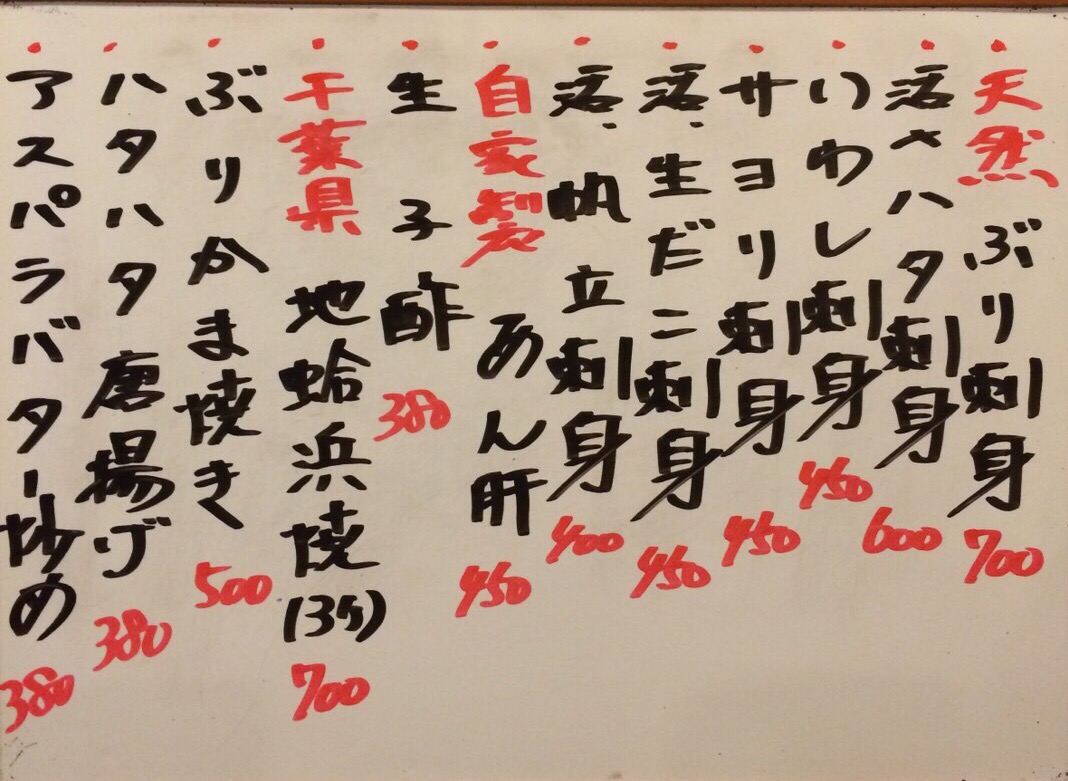 ・天然ぶり刺身 700
・活〆ハタ刺身 600
・いわし刺身 450
・サヨリ刺身 450
・活、生だこ刺身 450
・活、帆立刺身 400
・自家製あん肝 450
・生子酢 380
・千葉県 地蛤浜焼(3ケ) 700
・ぶりかま焼き 500
・ハタハタ唐揚げ 380
・アスパラバター炒め 380